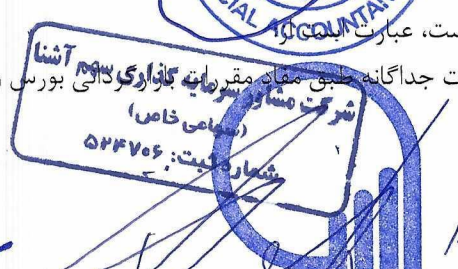 CIAL ACCOUNTAN
ست، عبارت است از:
ت جداگانه طبق مفاد مقررات بازارگردانی بورس
شرکت مشاور سرمایه گذاری سهم آشنا
(سهامی خاص)
شماره ثبت: ۵۲۴۷۰۶